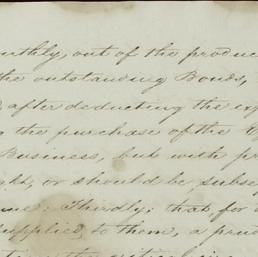 nthly, out of the produc
the outstanding Bonds,
after deducting the ex
the purchase of the
Business, but with pr
or should be, subse
Thirdly; that for
supplied, to them, a pru